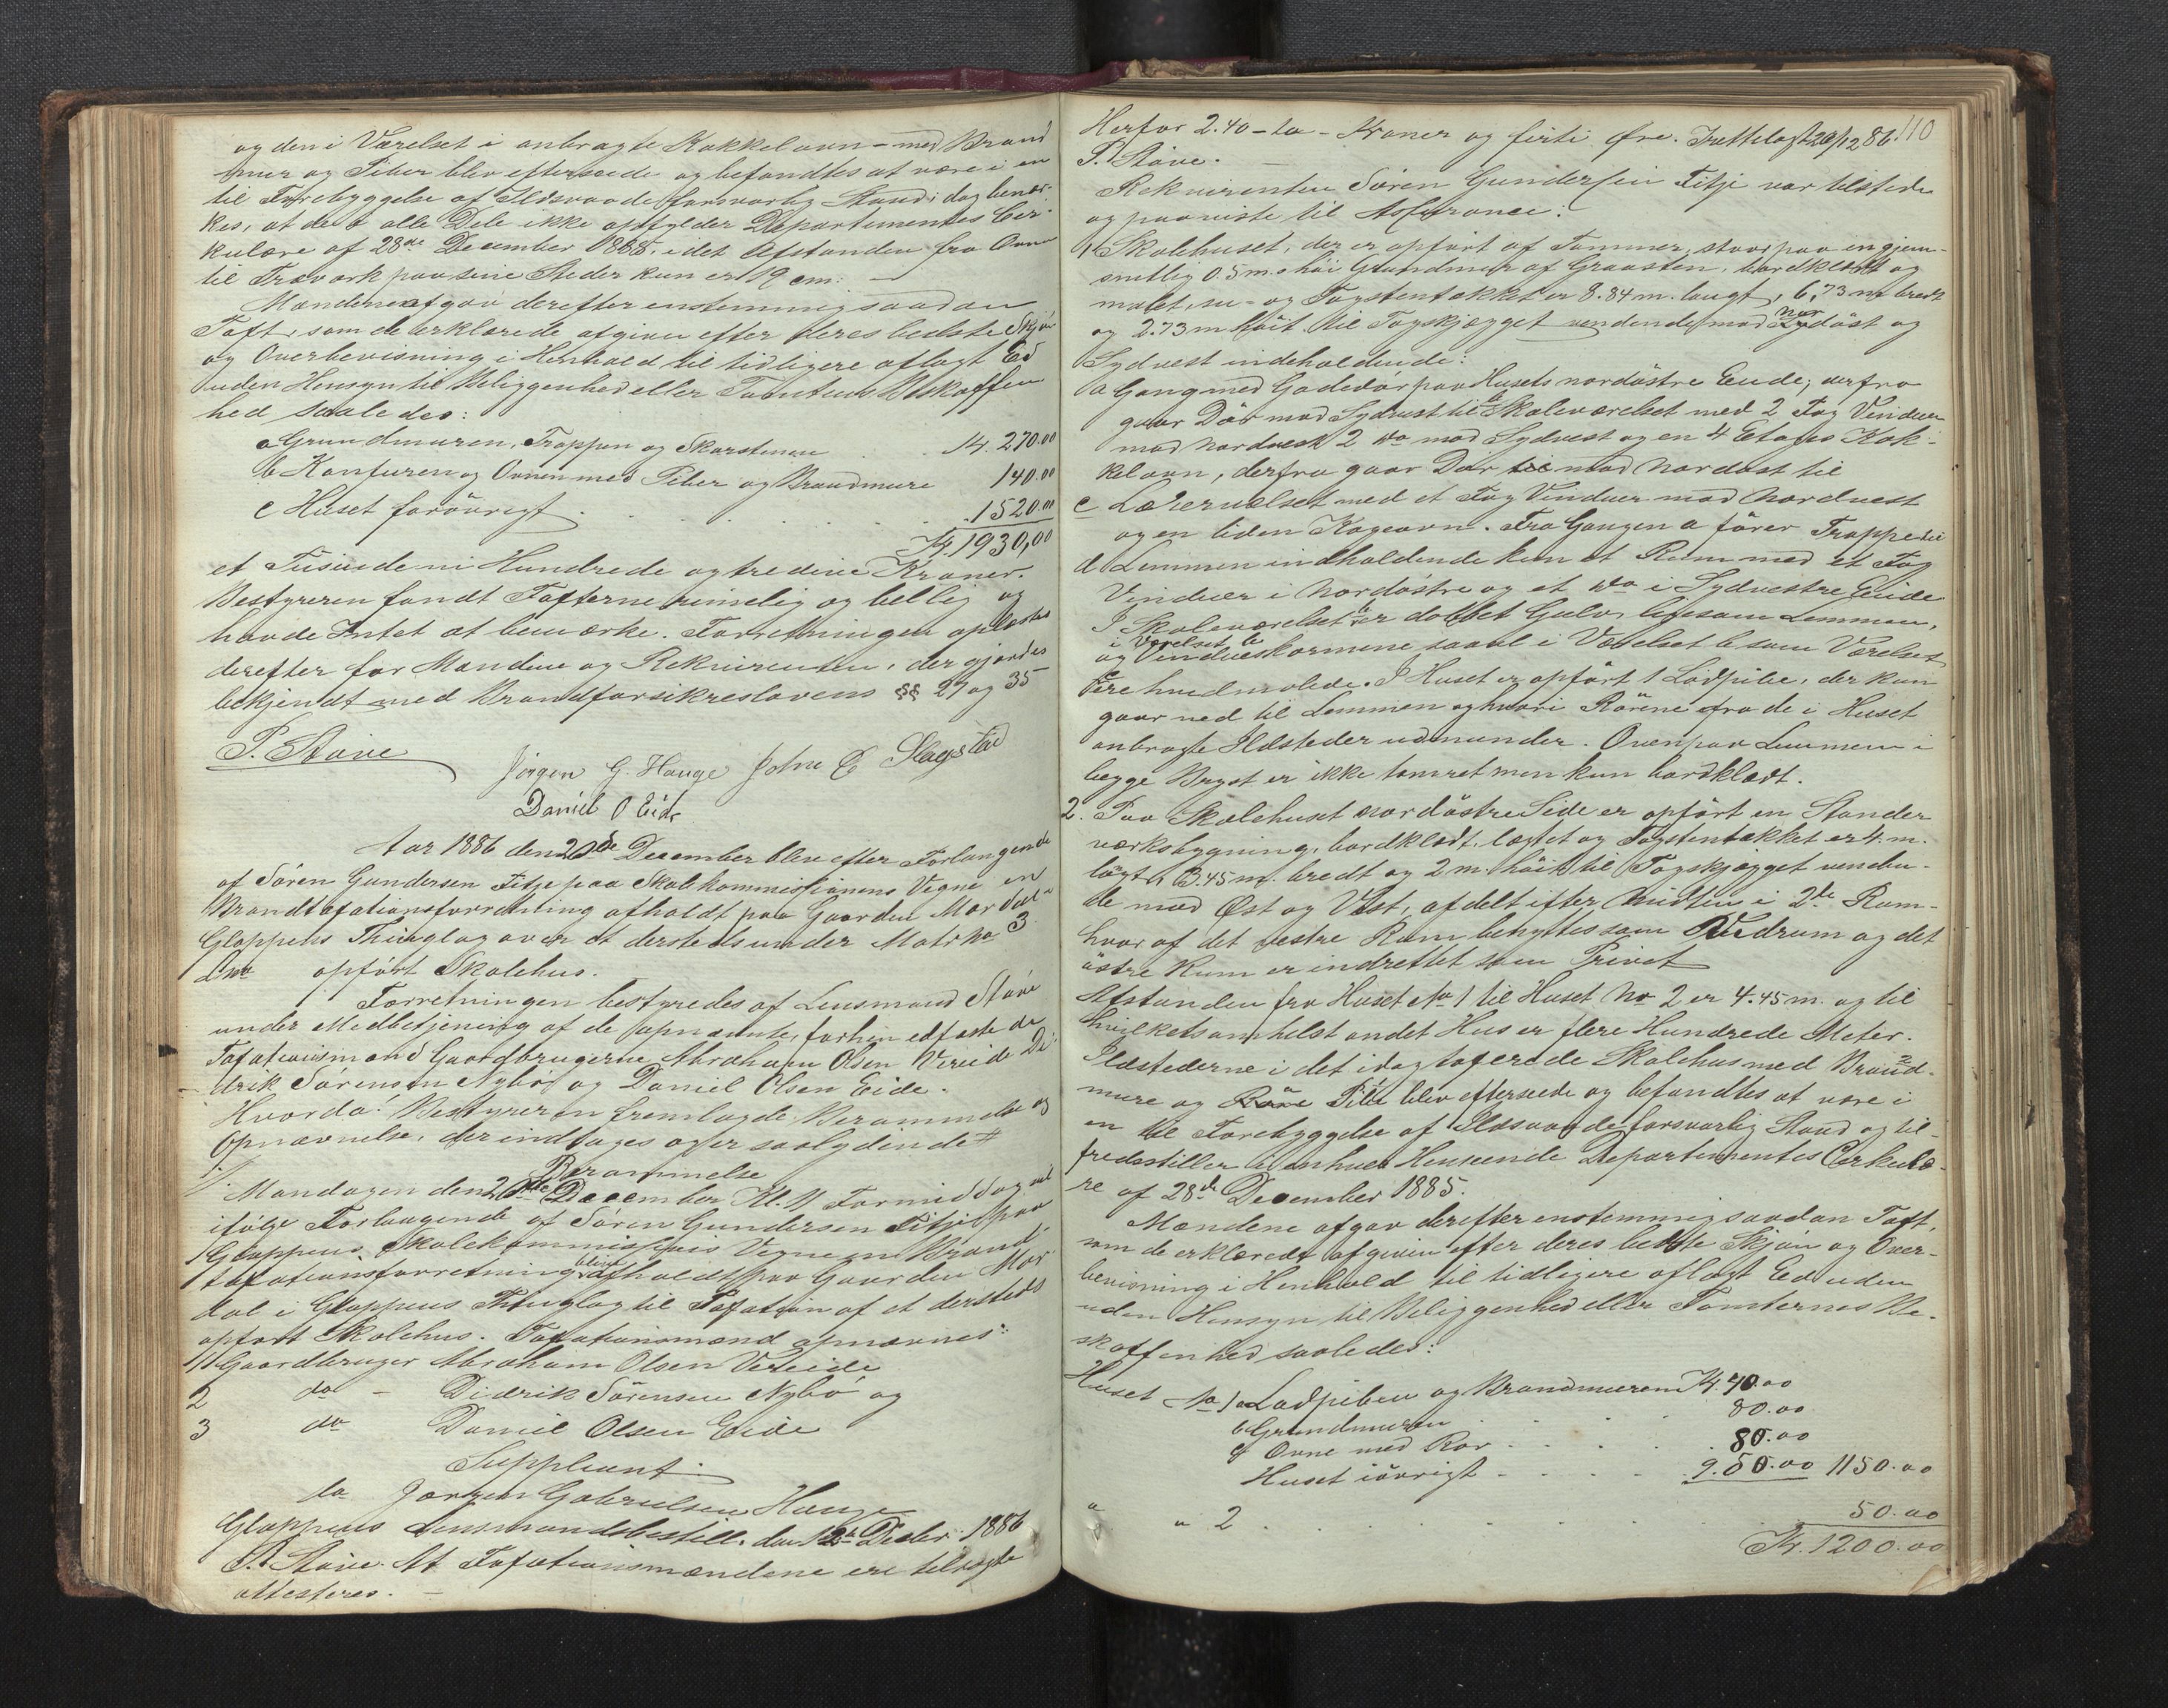 og den i Værelset i anbragte Kakkelovn med Brand
mur og Piber blev efterseede og befandtes at være i en
til Forebyggelse af Ildsvaade forsvarlig Stand i dog bemær-
kes, at de i alle Dele ikke opfylder Departementets Cir-
kulære af 28de December 1885, idet Afstanden fra Ovne
til Træværk paa sine Steder kun er 19 cm. —
Mændene afgav derefter enstemmig saadan
Taxt, som de erklærede afgiven efter deres bedste Skjøn
og Overbevisning i Henhold til tidligere aflagt Ed
uden Hensyn til Beliggenhed eller Tomtens Beskaffen
hed saaledes:
a Grundmuren, Trappen og Skorstenen . . Kr. 270.00
b Komfuren og Ovnen med Piber og Brandmure 140.00
c Huset forøvrigt . . . . . . 1520.00
Kr. 1930,00
et Tusinde ni Hundrede og tredive Kroner.
Bestyreren fandt Taxterne rimelig og billig og
havde Intet at bemærke. Forretningen oplæstes
derefter for Mændene og Rekvirenten, der gjordes
bekjendt med Brandforsikreslovens §§ 27 og 35
P. Støve
Jørgen G. Hauge John E Slagstad
Daniel O Eide
Aar 1886 den 20de December blev efter Forlangende
af Søren Gundersen Fitje paa Skolekommissionens Vegne en
Brandtaxationsforretning afholdt paa Gaarden Mardal i
Gloppens Thinglag over et dersteds under Matr No 3
Lno opført Skolehus.
Forretningen bestyredes af Lensmand Støve
under Medbetjening af de opnævnte, forhen edfæstede
Taxationsmænd Gaardbrugerne Abraham Olsen Vereide Di-
drik Sørensen Nybø og Daniel Olsen Eide.
Hvorda: Bestyreren fremlagde Berammelse og
Opnævnelse, der indtages og er saalydende #
Berammelse
Mandagen den 20de December Kl. 11 Formiddag vil
ifølge Forlangende af Søren Gundersen Fitje paa
Gloppens Skolekommissions Vegne en Brand
taxationsforretning blive afholdt paa Gaarden Mar
dal i Gloppens Thinglag til Taxation af et dersteds
opført Skolehus. Taxationsmænd opnævnes:
1 Gaardbruger Abraham Olsen Vereide
2 do – Didrik Sørensen Nybø og
3 do Daniel Olsen Eide
Suppleant
do Jørgen Gabrielsen Hauge
Gloppens Lensmandsbestill. den 12te Decbr. 1886
P. Støve At Taxationsmændene ere tilsagte
attesteres. –
Herfor 2.40 – to – Kroner og firti Øre. Rettelagt 20/12 86. 110
P. Støve. —
Rekvirenten Søren Gundersen Fitje var tilstede
og paaviste til Assurance:
1 Skolehuset, der er opført af Tømmer, staar paa en gjenn-
emsnitlig 0.5 m. høi Grundmur af Graasten, bordklædt og
malet, su- og Tagstentækket er 8.84 m. langt, 6,73 m bredt
og 2.73 m høit til Tagskjægget vendende mod Nordøst og
Sydvest indeholdende:
a Gang med Gadedør paa Husets nordøstre Ende, derfra
gaar Dør mod Sydvest til b Skoleværelset med 2 Fag Vinduer
mod Nordvest 2 do mod Sydvest og en 4 Etages Kak-
kelovn, derfra gaar Dør til mod Nordøst til
c Lærerværelset med et Fag Vinduer mod Nordvest
og en liden Kogeovn. Fra Gangen a fører Trappe til
d Lemmen indholdende kun et Rum med et Fag
Vinduer i Nordøstre og et do i Sydvestre Ende
I Skoleværelset er dobbelt Gulv, ligesom Lemmen,
i Værelset b
og Vindueskarmene saavel i Værelset b som Værelset
c ere hvidmalede. I Huset er opført 1 Lodpibe, der kun
gaar ned til Lemmen og hvori Rørene fra de i Huset
anbragte Ildsteder udmunder. Ovenpaa Lemmen i
begge Bryst er ikke tømret men kun bordklædt.
2. Paa Skolehuset nordøstre Side er opført en Stander
værksbygning, bordklædt, lægtet og Tagstentækket er 4 m.
langt, 3.45 m. bredt og 2 m. høit til Tagskjægget venden-
de mod Øst og Vest, afdelt efter Midten i 2de Rum-
hvoraf det vestre Rum benyttes som Vedrum og det
østre Rum er indrettet som Privet
Afstanden fra Huset No 1 til Huset No 2 er 4.45 m. og til
hvilketsomhelst andet Hus er flere Hundrede Meter.
Ildstederne i det idag taxerede Skolehus med Brand-
mure og Røre Pibe blev efterseede og befandtes at være i
en til Forebyggelse af Ildsvaade forsvarlig Stand og til-
fredsstiller i enhver Henseende Departementets Cirkulæ-
re af 28de December 1885.
Mændene afgav derefter enstemmig saadan Taxt,
som de erklærede afgiven efter deres bedste Skjøn og Over-
bevisning i Henhold til tidligere aflagt Ed uden
uden Hensyn til Beliggenhed eller Tomternes Be-
skaffenhed saaledes:
Huset No 1 a Lodpiben og Brandmuren Kr. 40.00
b Grundmuren . . . 80.00
c Ovne med Rør . . . 80.00
Huset iøvrigt . . . 950.00 1150.00
" " 2 . . . . . . . 50.00
Kr. 1200.00